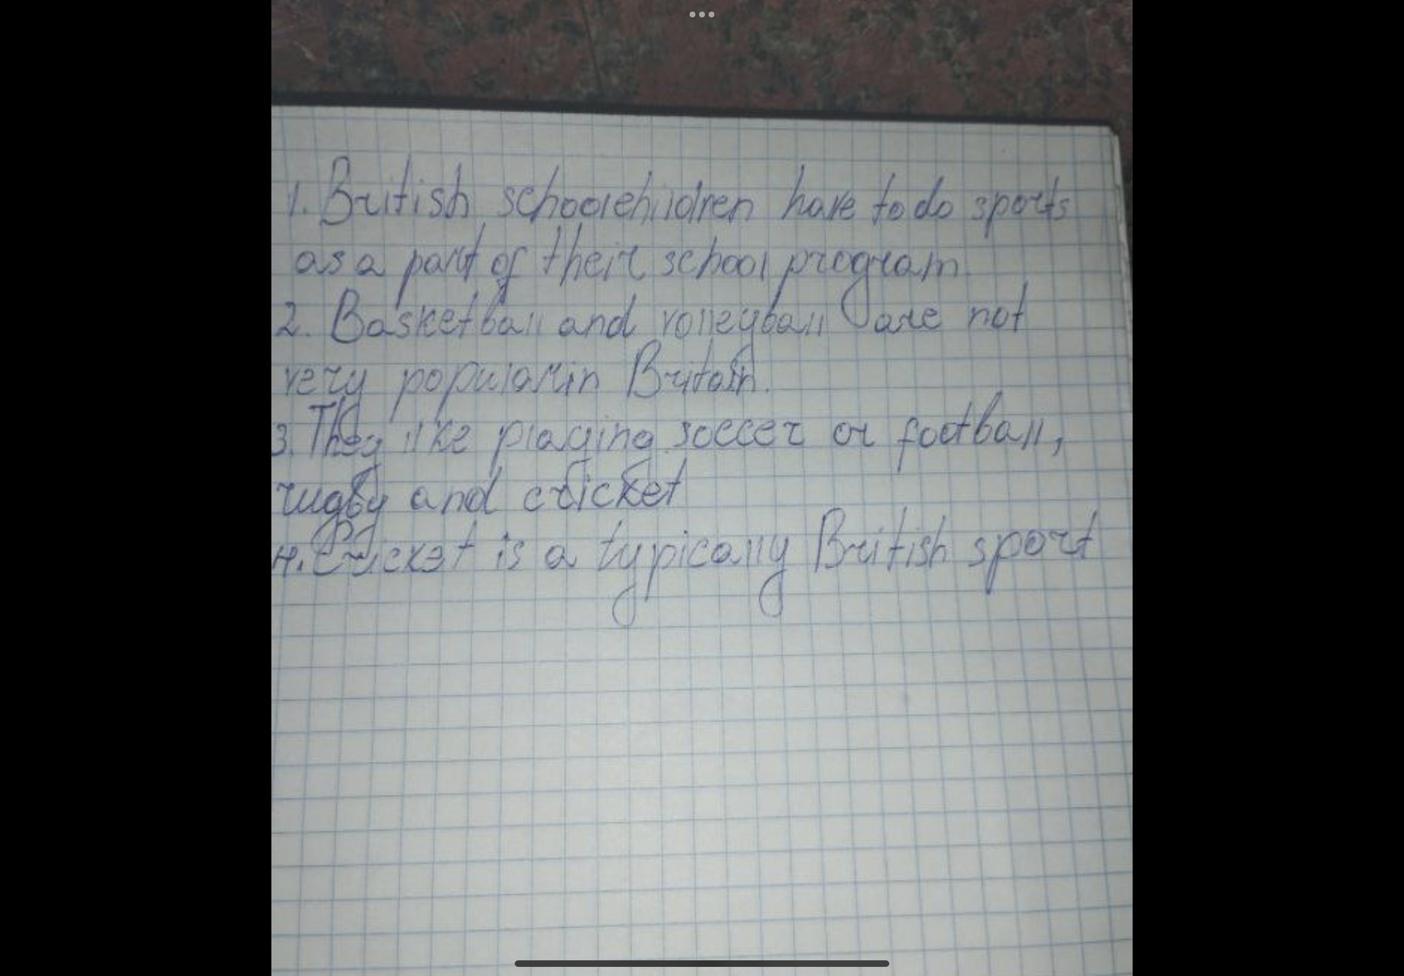 1. British schoolchildren have to do sports
as a part of their school program.
2. Basketball and volleyball are not
very popular in Britain.
3. They like playing soccer or football,
rugby and cricket
4. Cricket is a typically British sport